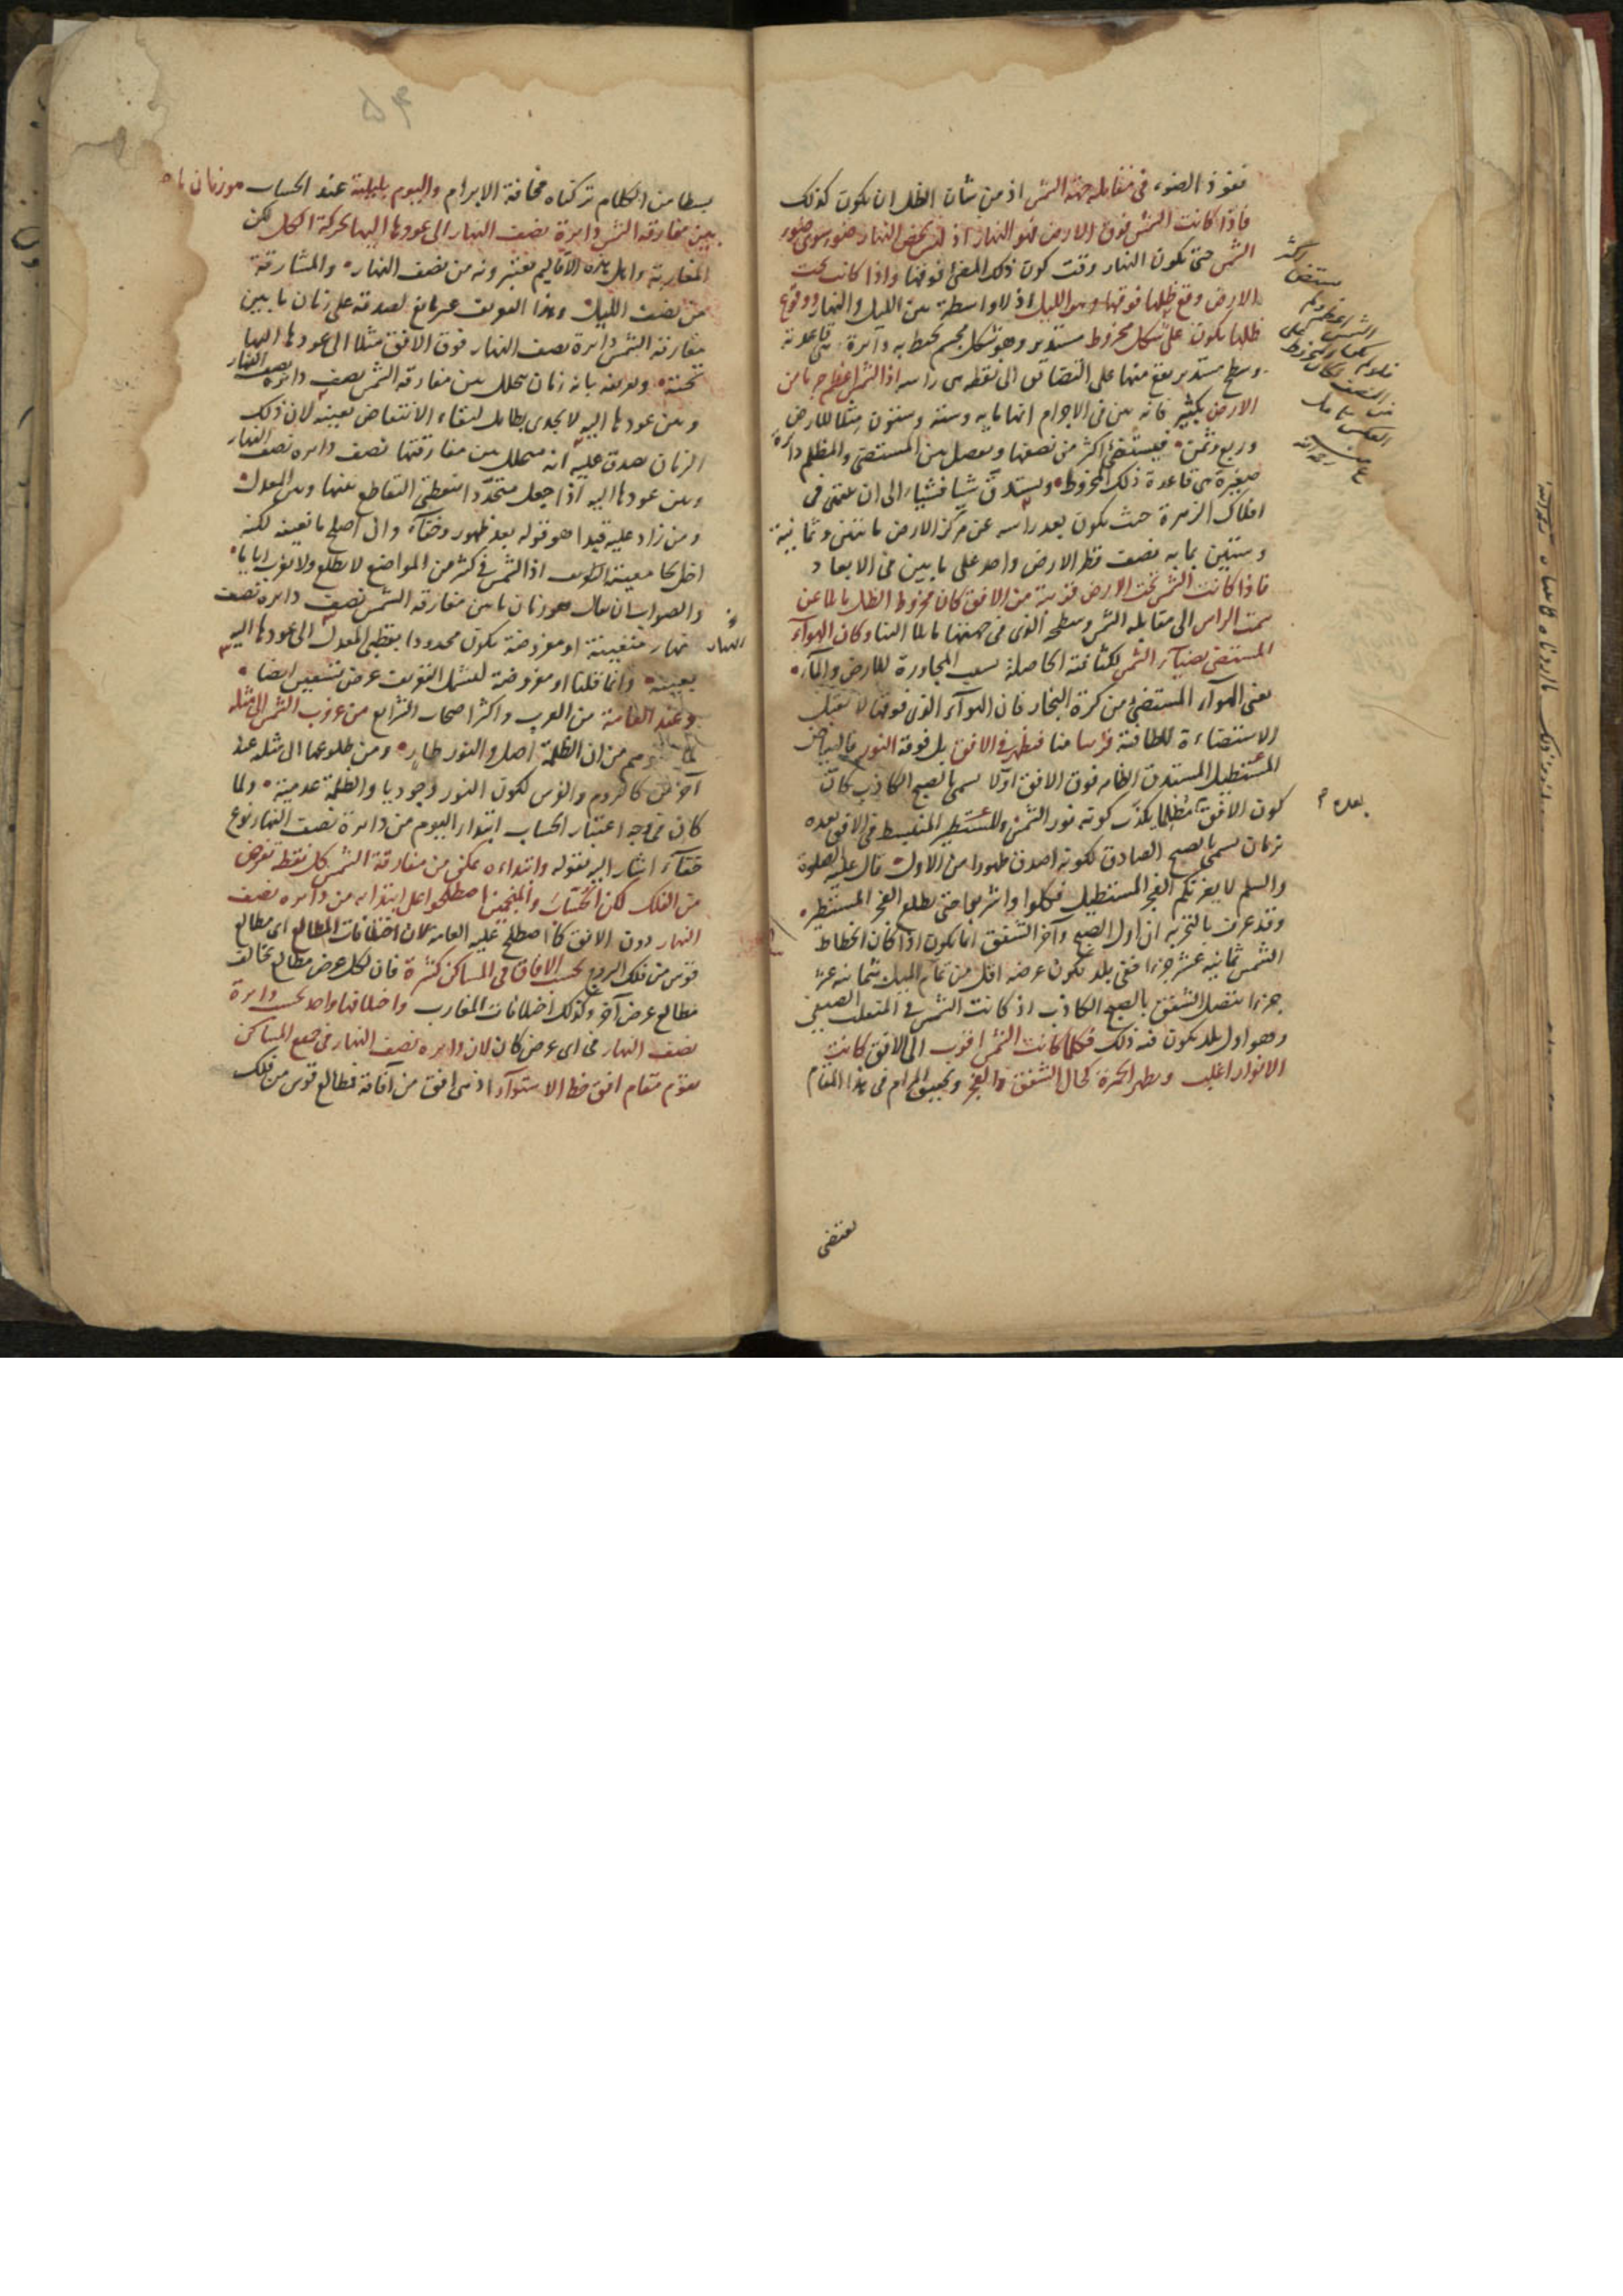 نفوذ الضوء في مقابلة جهة الشمس اذ من شان الظل ان يكون كذلك
فاذا كانت الشمس فوق الارض فهو النهار اذ النهار ضوء سوى ضوء
الشمس حتى يكون النهار وقت كون ذلك المضئ فوقها واذا كانت تحت
الارض وقع ظلها فوقها وهو الليل اذ لا واسطة بين الليل والنهار ووقوع
ظلها يكون على شكل مخروط مستدير وهو شكل مجسم يحيط به دائرة هي قاعدته
وسطح مستدير يرتفع منها على التضايق الى نقطة هي راسه اذ الشمس اعظم جرما من
الارض بكثير فانه بين في الاجرام انها مايه وستة وستون مثلا للارض
وربع وثمن فيستضئ اكثر من نصفها ويفصل بين المستضئ والمظلم دائرة
صغيرة هي قاعدة ذلك المخروط ويستدق شيا فشيا الى ان ينتهي في
افلاك الزهرة حيث يكون بعد راسه عن مركز الارض مائتين وثمانية
وستين بما به نصف قطر الارض واحد على ما بين في الابعاد
فاذا كانت الشمس تحت الارض قريبة من الافق كان مخروط الظل مائلا عن
سمت الراس الى مقابلة الشمس وسطحه الذي في جهتها مائلا الينا وكان الهواء
المستضئ بضياء الشمس لكثافته الحاصلة بسبب المجاورة للارض والماء
يعني الهواء المستضئ من كرة البخار فان الهواء الذي فوقها لا يقبل
الاستضاءة للطافته قريبا منا فيظهر في الافق بل فوقه النور كالبياض
المستطيل المستدق الظاهر فوق الافق اولا يسمى بالصبح الكاذب كان
كون الافق مظلما يكذب كونه نور الشمس والمستطير المنبسط في الافق بعده
بزمان يسمى بالصبح الصادق لكونه اصدق ظهورا من الاول قال عليه الصلوة
والسلم لا يغرنكم الفجر المستطيل فكلوا واشربوا حتى يطلع الفجر المستطير
وقد عرف بالتجربة ان اول الصبح وآخر الشفق انما يكون اذا كان انحطاط
الشمس ثمانية عشر جزءا ففي بلد يكون عرضه اقل من تمام الميل بثمانية عشر
جزءا يتصل الشفق بالصبح الكاذب اذ كانت الشمس في المنقلب الصيفي
وهو اول بلد يكون فيه ذلك فكلما كانت الشمس اقرب الى الافق كانت
الانوار اغلب ويظهر الحمرة كحال الشفق والفجر وتحقيق المرام في هذا المقام
يقتضى
بعده
بسطا من الكلام تركناه مخافة الابرام واليوم بليلته عند الحساب هو زمان ما
بين مفارقة الشمس دائرة نصف النهار الى عودها اليها بحركة الكل لكن
المغاربة واهل هذه الاقاليم يعتبرونه من نصف النهار والمشارقة
من نصف الليل وهذا التعريف غير مانع لصدقه على زمان ما بين
مفارقة الشمس دائرة نصف النهار فوق الافق مثلا الى عودها اليها
تحته وتعريفه بانه زمان يتخلل بين مفارقة الشمس نصف دائرة نصف النهار
وبين عودها اليه لا يجدي بطائل لبقاء الانتقاض بعينه لان ذلك
الزمان يصدق عليه انه متخلل بين مفارقتها نصف دائرة نصف النهار
وبين عودها اليه اذا جعل متحددا بنقطتي التقاطع بينها وبين المعدل
ومن زاد عليه قيدا هو قوله بعد ظهور وخفاء وان اصلح مانعيته لكنه
اخل بجامعيته اذ الشمس في كثير من المواضع لا تطلع ولا تغرب اياما
والصواب ان يقال هو زمان ما بين مفارقة الشمس نصف دائرة نصف
النهار
نهار متعينة او مفروضة يكون محدودا بقطبي المعدل الى عودها اليه
بعينه وانما قلنا او مفروضة ليشمل التعريف عرض تسعين ايضا
وعند العامة من العرب واكثر اصحاب الشرايع من غروب الشمس الى مثله
من ان الظلمة اصل والنور طار ومن طلوعها الى مثله عند
آخرين كالروم والفرس لكون النور وجوديا والظلمة عدمية ولما
كان في وجه اعتبار الحساب ابتداء اليوم من دائرة نصف النهار نوع
خفاء اشار اليه بقوله وابتداءه يمكن من مفارقة الشمس كل نقطة تفرض
من الفلك لكن الحساب والمنجمين اصطلحوا على ابتدائه من دائرة نصف
النهار دون الافق كما اصطلح عليه العامة لان اختلافات المطالع اي مطالع
قوس من فلك البروج بحسب الافاق في المساكن كثيرة فان لكل عرض مطالع تخالف
مطالع عرض آخر وكذلك اختلافات المغارب واختلافها واحد بحسب دائرة
نصف النهار في اي عرض كان لان دائرة نصف النهار في جميع المساكن
تقوم مقام افق خط الاستواء اذ هي افق من آفاقه فطالع قوس من فلك